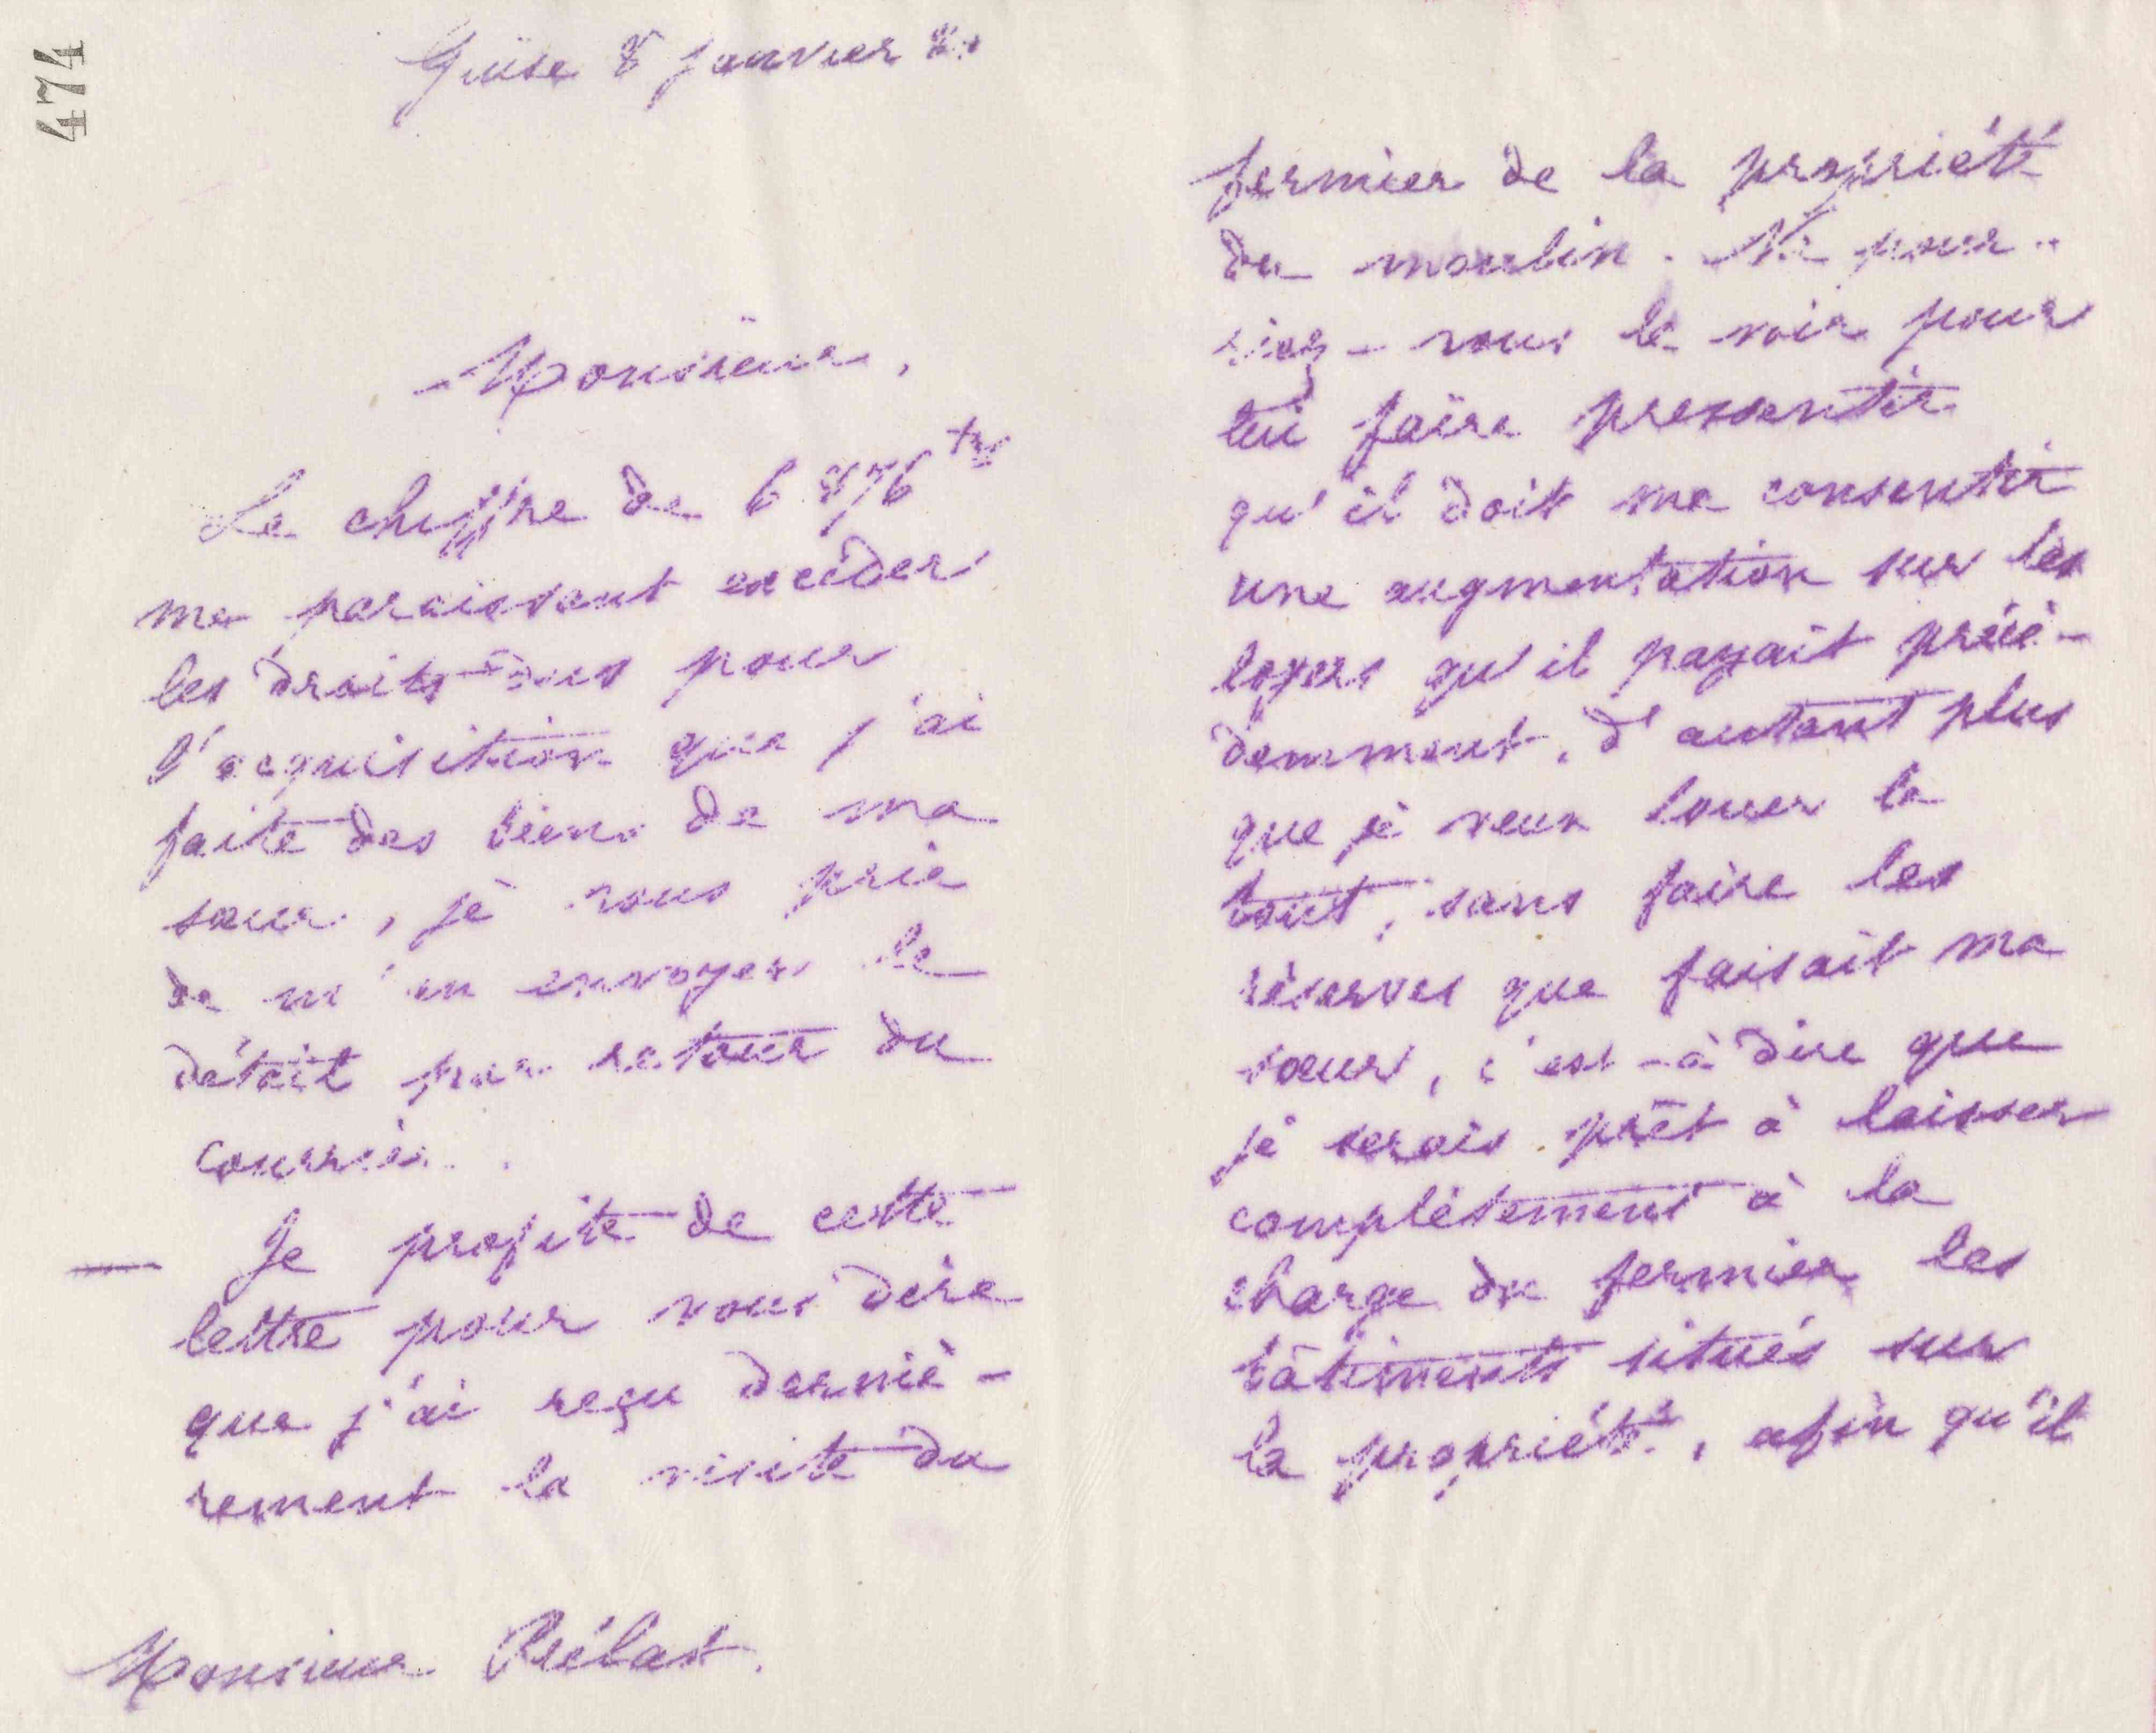 474
Guise 8 janvier
Monsieur,
Le chiffre de 6.876
me paraissant excéder
les droits dus pour
l'acquisition que j'ai
faite des biens de ma
sœur, je vous prie
de m'en envoyer le
détail par retour du
courrier.
Je profite de cette
lettre pour vous dire
que j'ai reçu derniè-
rement la visite du
Monsieur
fermier de la propriété
du moulin. Ne pour-
riez-vous le voir pour
lui faire pressentir
qu'il doit me consentir
une augmentation sur les
loyers qu'il payait précé-
demment, d'autant plus
que je veux louer le
tout, sans faire les
réserves que faisait ma
sœur, c'est-à dire que
je serais prêt à laisser
complètement à la
charge du fermier les
bâtiments situés sur
la propriété, afin qu'il